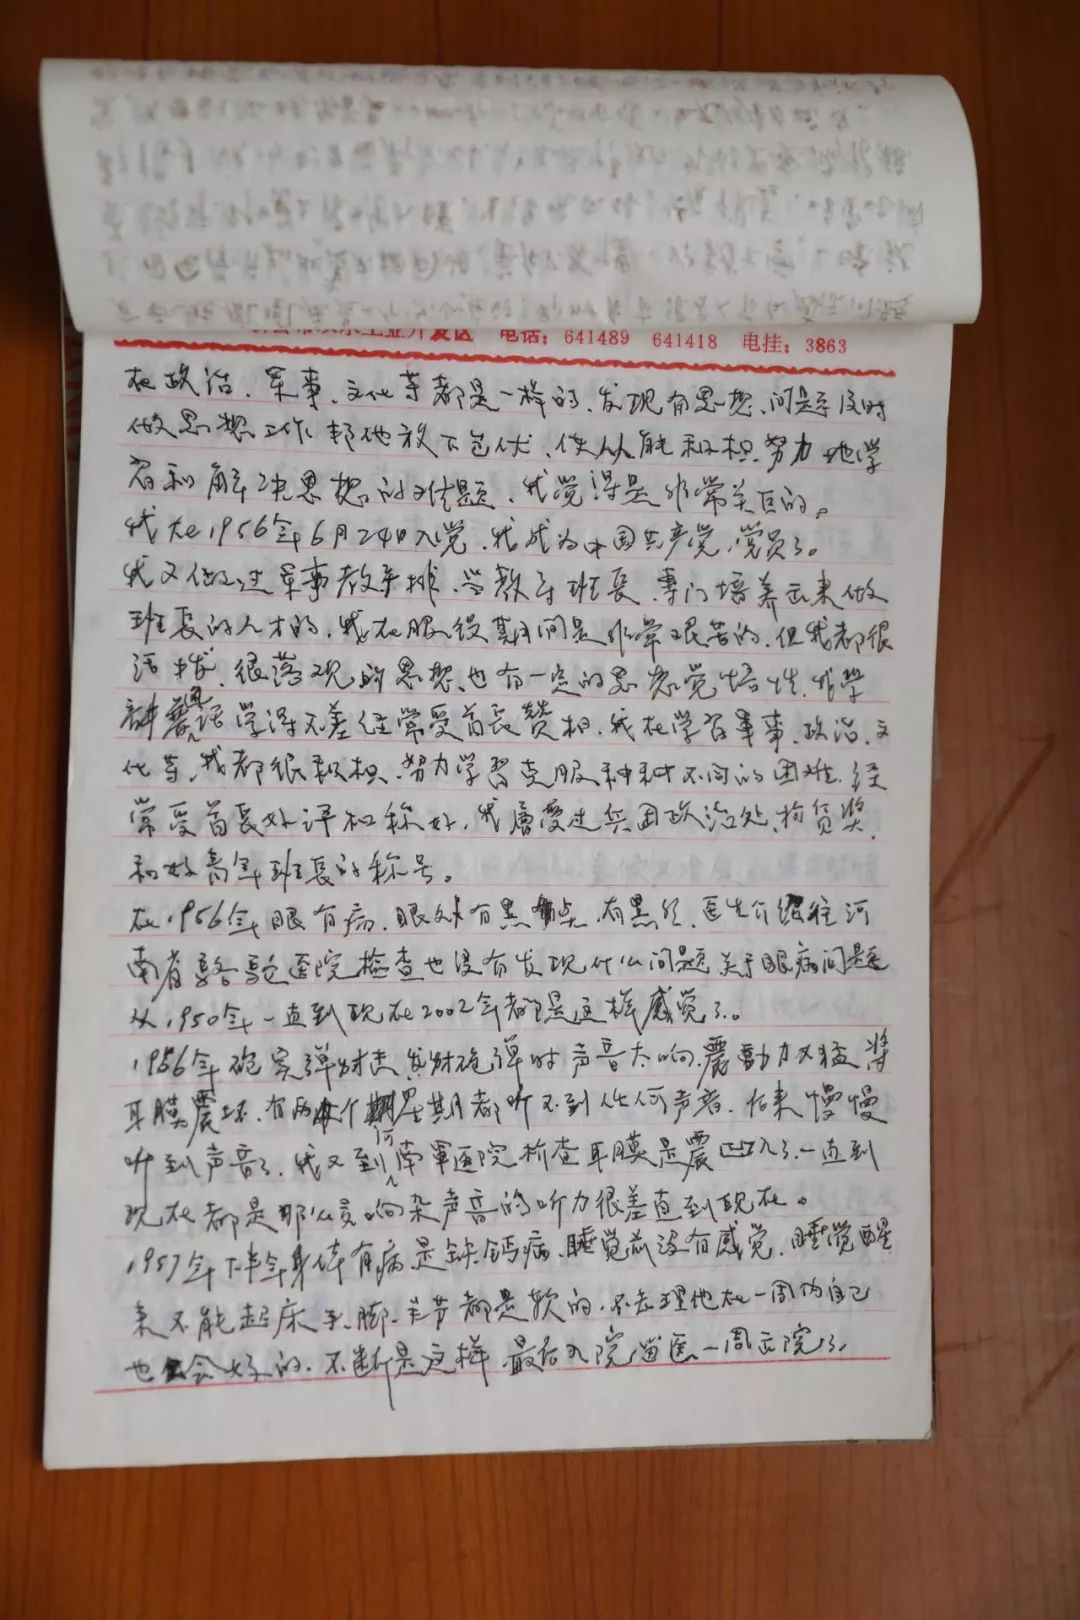 业开发区 电话：641489 641418 电挂：3863
在政治、军事、文化等都是一样的、发现有思想、问题及时
做思想工作 帮他放下包伏、使从能积极努力地学
习和解决思想的难题、我觉得是非常关巨的。
我在1956年6月24日入党、我成为中国共产党、党员了。
我又做过军事教导排、当教导班长、专门培养出来做
班长的人才的、我在服役期间是非常艰苦的、但我都很
活拔、很落观的思想、也有一定的思想觉悟性、我学
学得不差 经常受首长赞相、我在学习军事、政治、文
化等、我都很积极、努力学习克服种种不同的困难、经
常受首长好评和称好、我曾受过兵团政治处、物质奖、
和好青年班长的称号。
在1956年眼有病、眼外有黑点、有黑丝、医生介绍往河
南省骆驼医院检查也没有发现什么问题、关于眼病问题
从1950年一直到现在2002年都是这样感觉了。
1956年砲实弹射击、发射砲弹时声音太响、震动力又猛、将
耳膜震坏、有两个星期都听不到任何声音、后来慢慢
听到声音了、我又到河南军医院检查耳膜是震凹入了、一直到
现在都是那么响杂声音的听力很差直到现在。
1957年下半年身体有病是缺钙病、睡觉前没有感觉、睡觉醒
来不能起床手、脚、关节都是软的、不去理他在一周内自己
也会好的、不断是这样、最后入院留医一周出院了、